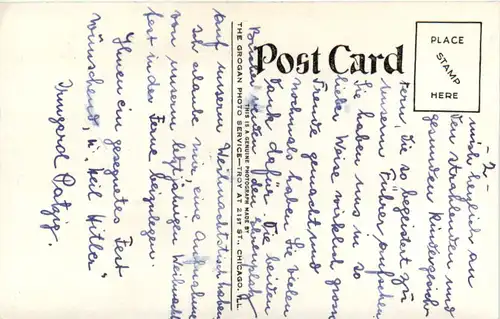 Post Card
PLACE
STAMP
HERE
THE GROGAN PHOTO SERVICE—TROY AT 21ST ST., CHICAGO, ILL.
THIS IS A GENUINE PHOTOGRAPH MADE BY
- 2 -
mich herzlich an
den strahlenden und
gesunden Kindergesich-
tern, die so begeistert zu
unserm Führer aufsehen.
Sie haben uns in so
lieber Weise wirklich grosse
Freude gemacht und
nochmals haben Sie vielen
Dank dafür. Die beiden
Bilder werden den Ehrenplatz
auf unserem Weihnachtstisch haben.
Ich erlaube mir, eine Aufnahme
von unserm letztjährigen Weihnachts-
fest in der Ferne beizulegen.
Ihnen ein gesegnetes Fest
wünschend, u. "Heil Hitler"
Irmgard